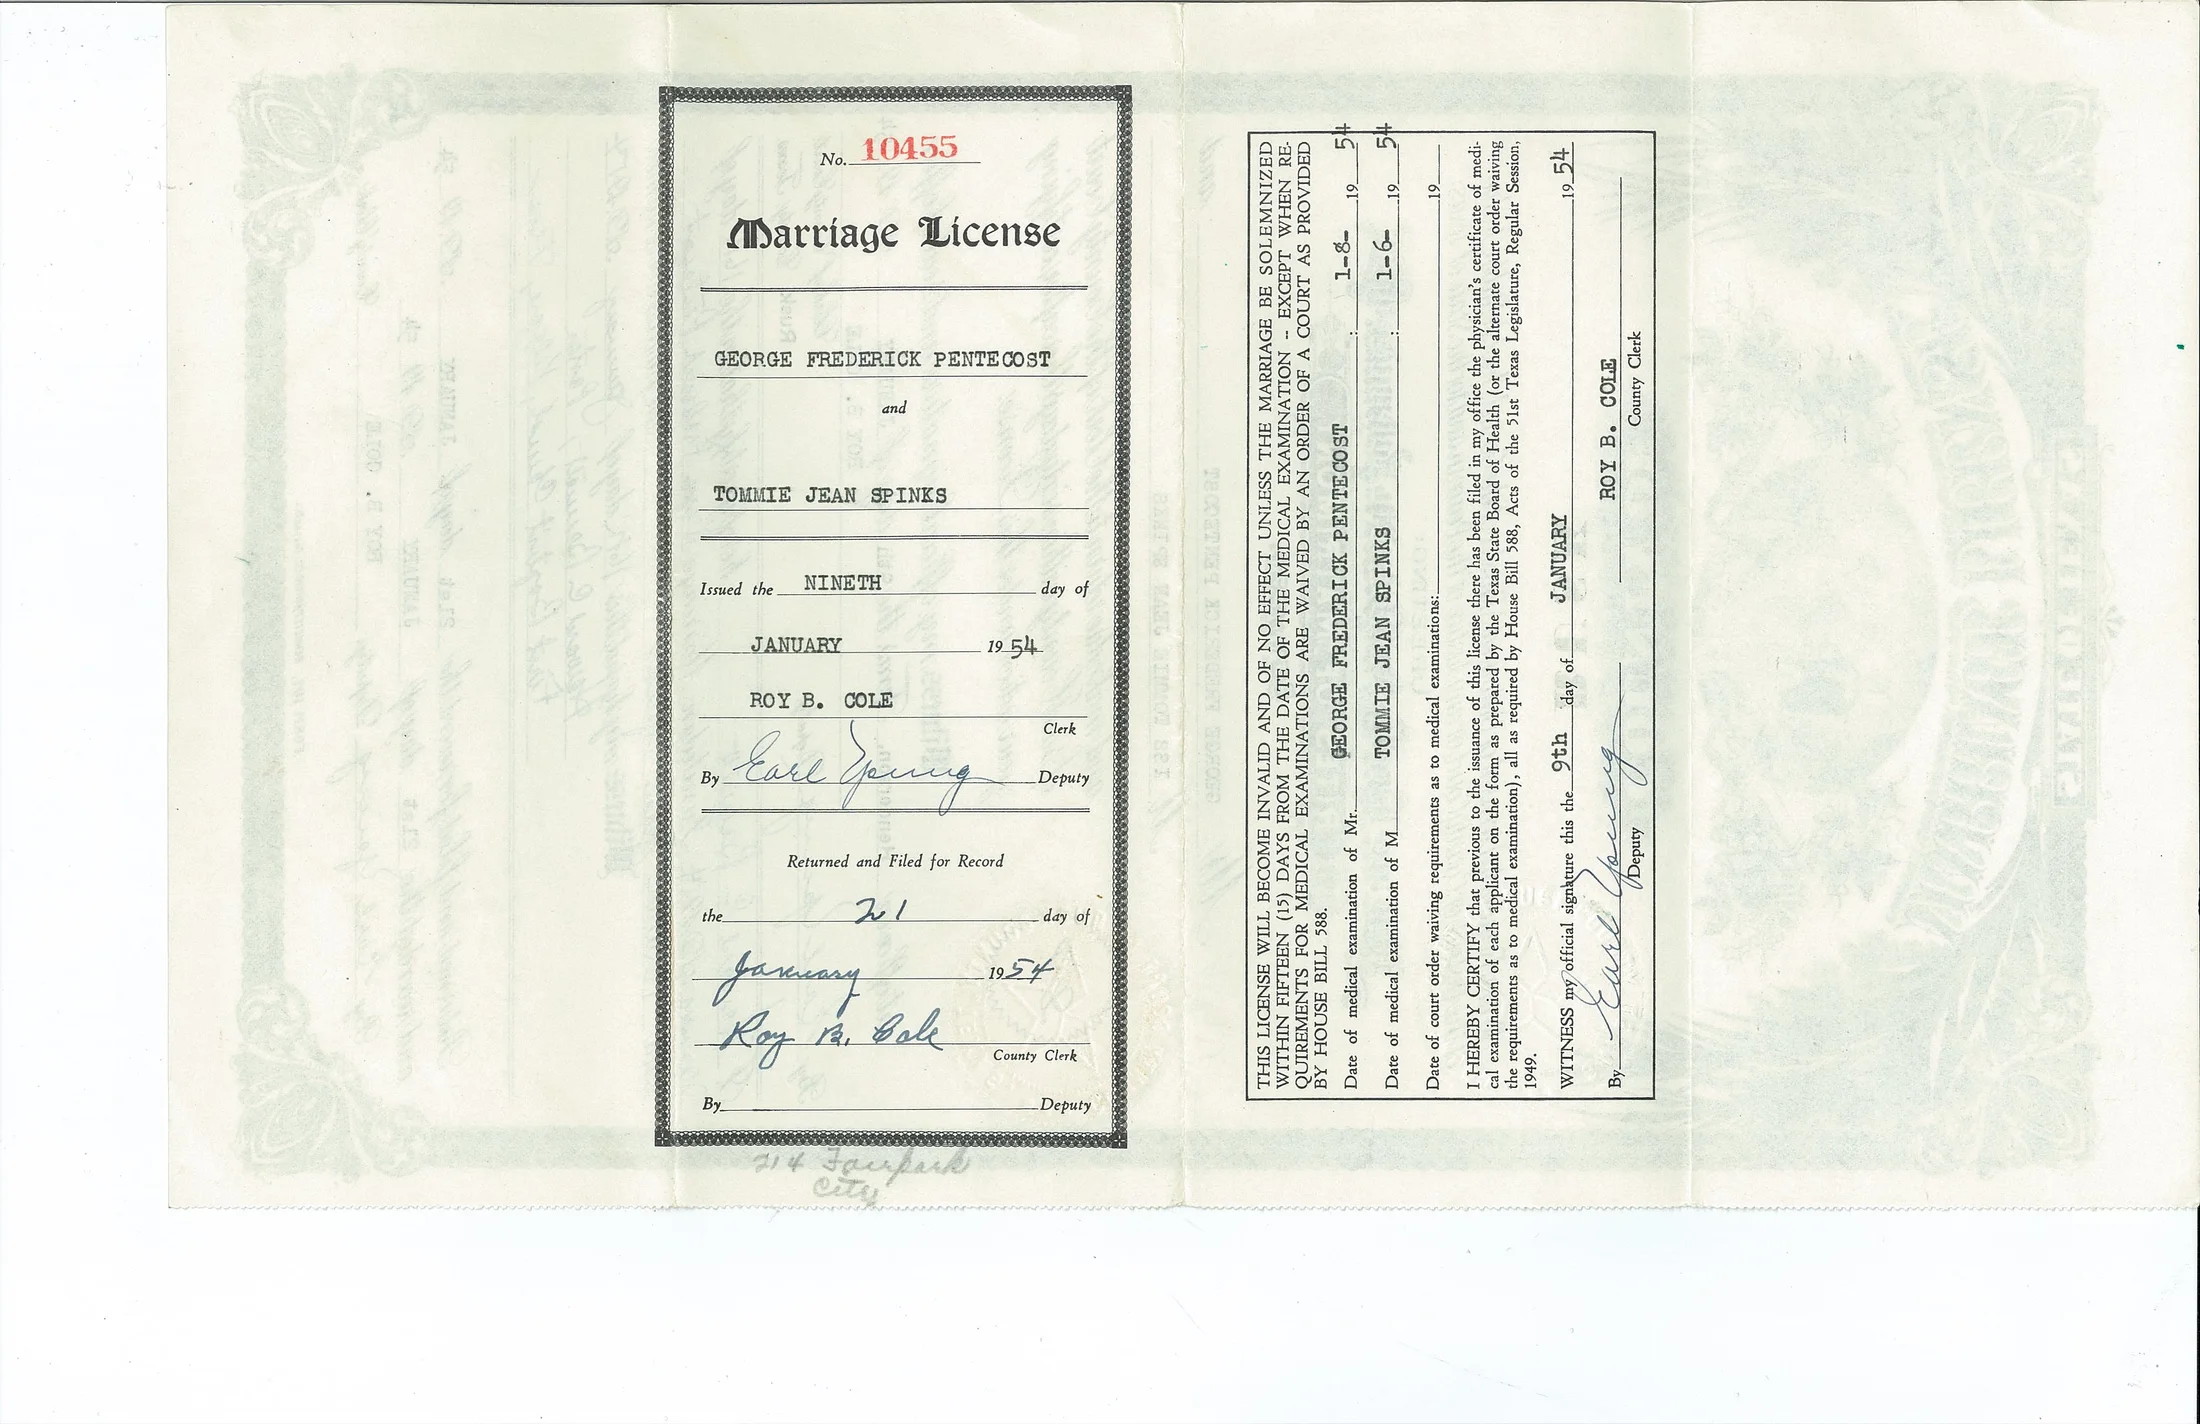 No. 10455
Marriage License
GEORGE FREDERICK PENTECOST
and
TOMMIE JEAN SPINKS
Issued the NINETH day of
JANUARY 1954
ROY B. COLE
Clerk
By Earl Young Deputy
Returned and Filed for Record
the 21 day of
January 1954
Roy B. Cole
County Clerk
By Deputy
214 Fairpark
City
THIS LICENSE WILL BECOME INVALID AND OF NO EFFECT UNLESS THE MARRIAGE BE SOLEMNIZED
WITHIN FIFTEEN (15) DAYS FROM THE DATE OF THE MEDICAL EXAMINATION -- EXCEPT WHEN RE-
QUIREMENTS FOR MEDICAL EXAMINATIONS ARE WAIVED BY AN ORDER OF A COURT AS PROVIDED
BY HOUSE BILL 588.
Date of medical examination of Mr. GEORGE FREDERICK PENTECOST : 1-8- 1954
Date of medical examination of M TOMMIE JEAN SPINKS : 1-6- 1954
Date of court order waiving requirements as to medical examinations: 19
I HEREBY CERTIFY that previous to the issuance of this license there has been filed in my office the physician's certificate of medi-
cal examination of each applicant on the form as prepared by the Texas State Board of Health (or the alternate court order waiving
the requirements as to medical examination), all as required by House Bill 588, Acts of the 51st Texas Legislature, Regular Session,
1949.
WITNESS my official signature this the 9th day of JANUARY 1954
By Earl Young ROY B. COLE
Deputy County Clerk